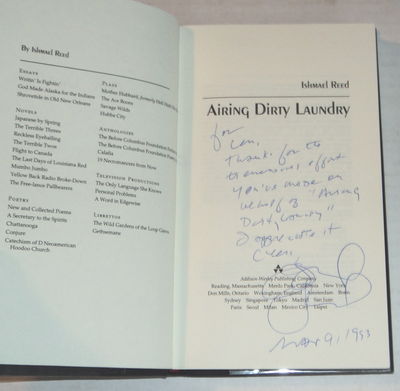 By Ishmael Reed
ESSAYS
Writin' Is Fightin'
God Made Alaska for the Indians
Shrovetide in Old New Orleans
NOVELS
Japanese by Spring
The Terrible Threes
Reckless Eyeballing
The Terrible Twos
Flight to Canada
The Last Days of Louisiana Red
Mumbo Jumbo
Yellow Back Radio Broke-Down
The Free-lance Pallbearers
POETRY
New and Collected Poems
A Secretary to the Spirits
Chattanooga
Conjure
Catechism of D Neoamerican
Hoodoo Church
PLAYS
Mother Hubbard, formerly Hell Hath
The Ace Boons
Savage Wilds
Hubba City
ANTHOLOGIES
The Before Columbus Foundation
The Before Columbus Foundation
Calafia
19 Necromancers from Now
TELEVISION PRODUCTIONS
The Only Language She Knows
Personal Problems
A Word in Edgewise
LIBRETTOS
The Wild Gardens of the Loup Garou
Gethsemane
Ishmael Reed
Airing Dirty Laundry
for
Len,
Thanks for the
tremendous effort
you've made on
behalf of "Airing
Dirty Laundry"
I appreciate it
Addison-Wesley Publishing Company
Reading, Massachusetts Menlo Park, California New York
Don Mills, Ontario Wokingham, England Amsterdam Bonn
Sydney Singapore Tokyo Madrid San Juan
Paris Seoul Milan Mexico City Taipei
9, 1993